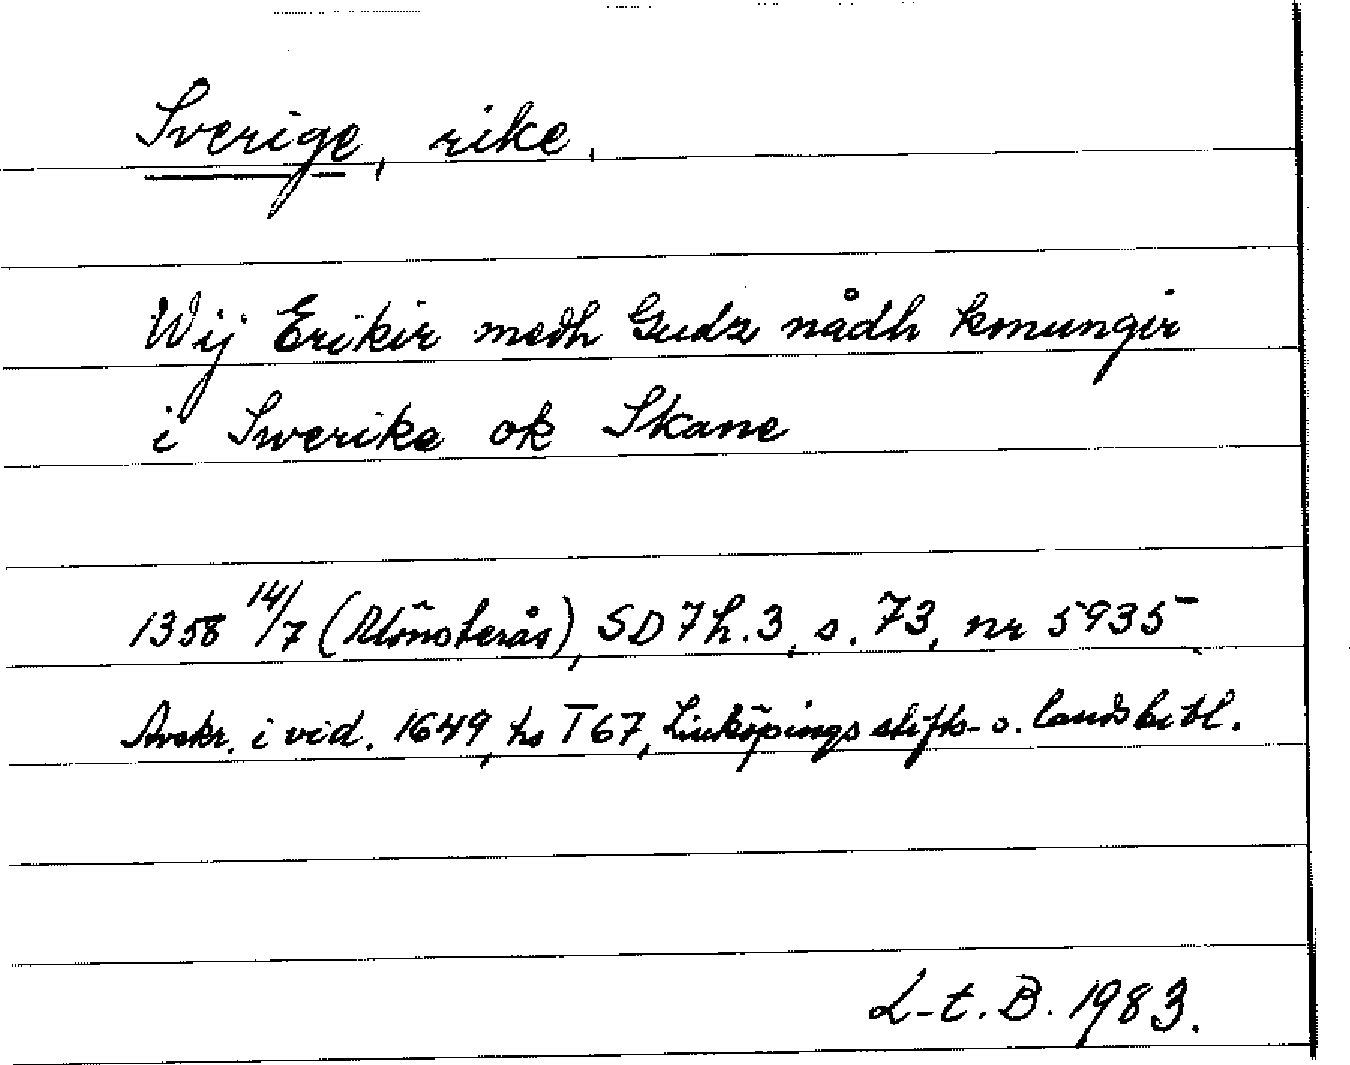 Sverige, rike.
Wij Erikir medh Gudz nådh konungir
i Swerike ok Skane
1358 14/7 (Mönsterås), SD 7 h. 3, s. 73, nr 5935
Avskr. i vid. 1649, hs T 67, Linköpings stifts- o. landsbibl.
L-t. B. 1983.